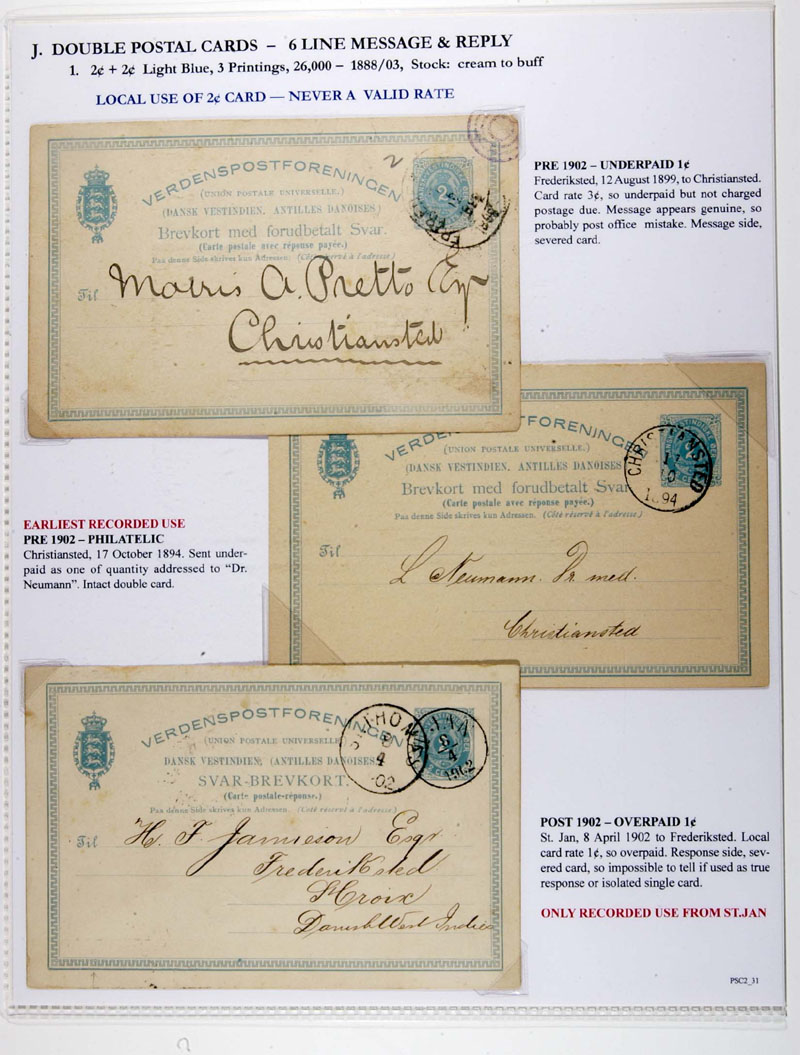 J. DOUBLE POSTAL CARDS – 6 LINE MESSAGE & REPLY
1. 2¢ + 2¢ Light Blue, 3 Printings, 26,000 – 1888/03, Stock: cream to buff
LOCAL USE OF 2¢ CARD — NEVER A VALID RATE
2
VERDENSPOSTFORENINGEN
(UNION POSTALE UNIVERSELLE.)
(DANSK VESTINDIEN. ANTILLES DANOISES)
Brevkort med forudbetalt Svar.
(Carte postale avec réponse payée.)
Paa denne Side skrives kun Adressen. (Côté réservé à l'adresse.)
Til Morris A. Pretto Esq
Christiansted
PRE 1902 – UNDERPAID 1¢
Frederiksted, 12 August 1899, to Christiansted.
Card rate 3¢, so underpaid but not charged
postage due. Message appears genuine, so
probably post office mistake. Message side,
severed card.
VERDENSPOSTFORENINGEN
(UNION POSTALE UNIVERSELLE.)
(DANSK VESTINDIEN. ANTILLES DANOISES
Brevkort med forudbetalt Svar
(Carte postale avec réponse payée.)
Paa denne Side skrives kun Adressen. (Côté réservé à l'adresse.)
CHRISTIANSTED
17
10
1894
Til
L Neumann. Dr med.
Christiansted
EARLIEST RECORDED USE
PRE 1902 – PHILATELIC
Christiansted, 17 October 1894. Sent under-
paid as one of quantity addressed to “Dr.
Neumann”. Intact double card.
VERDENSPOSTFORENINGEN
(UNION POSTALE UNIVERSELLE)
DANSK VESTINDIEN, (ANTILLES DANOISES)
SVAR-BREVKORT.
(Carte postale-réponse.)
Paa denne Side skrives kun Adressen. (Côté réservé à l'adresse.)
ST THOMAS
8
4
02
JAN
8/4
1902
Til H. F. Jamieson Esqr
Frederiksted
St Croix
Danish West Indies
POST 1902 – OVERPAID 1¢
St. Jan, 8 April 1902 to Frederiksted. Local
card rate 1¢, so overpaid. Response side, sev-
ered card, so impossible to tell if used as true
response or isolated single card.
ONLY RECORDED USE FROM ST.JAN
PSC2_31